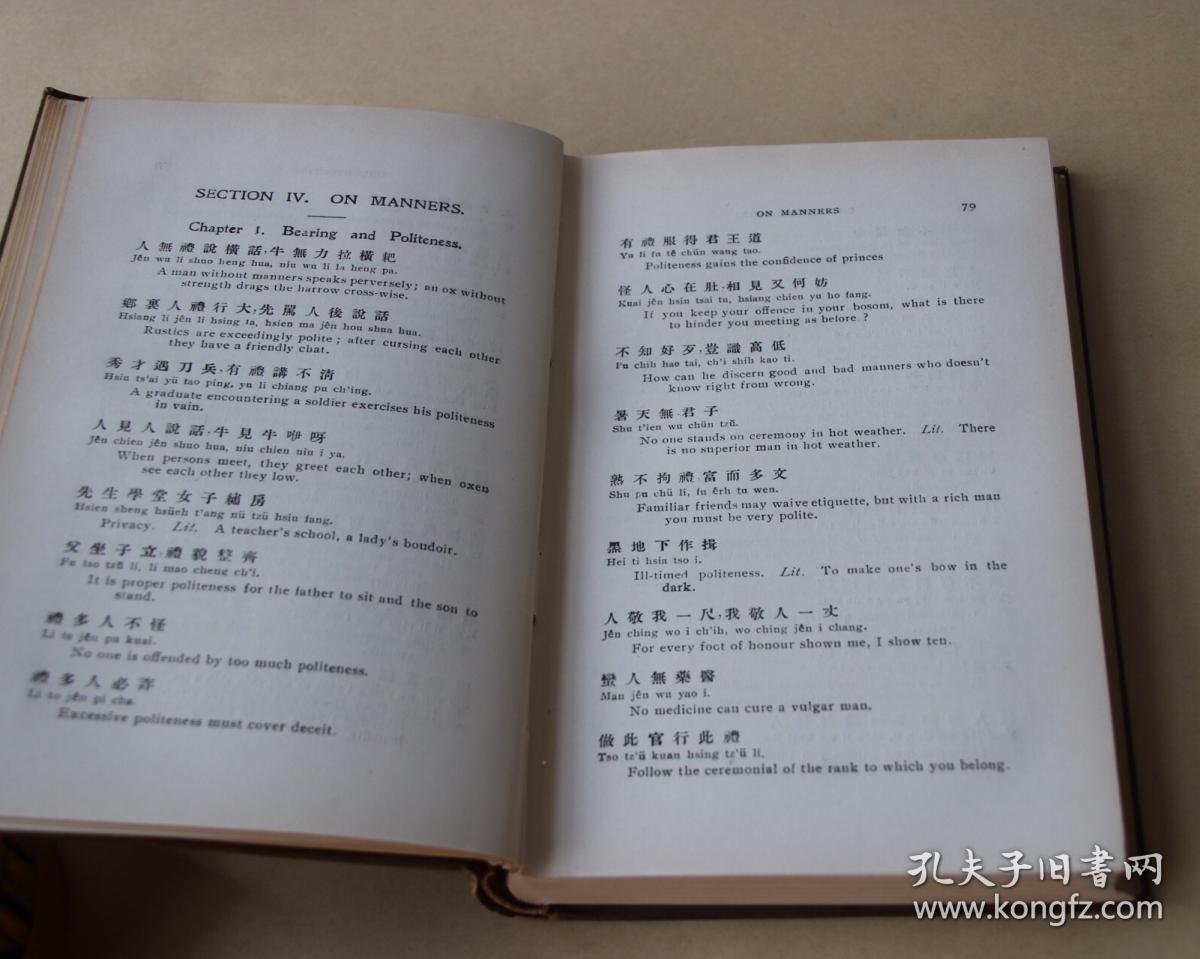 SECTION IV. ON MANNERS.
Chapter 1. Bearing and Politeness.
人無禮說橫話,牛無力拉橫耙
Jên wu li shuo heng hua, niu wu li la heng pa.
A man without manners speaks perversely; an ox without
strength drags the harrow cross-wise.
鄉裏人禮行大,先罵人後說話
Hsiang li jên li hsing ta, hsien ma jên hou shuo hua.
Rustics are exceedingly polite; after cursing each other
they have a friendly chat.
秀才遇刀兵,有禮講不清
Hsiu ts'ai yü tao ping, yu li chiang pu ch'ing.
A graduate encountering a soldier exercises his politeness
in vain.
人見人說話,牛見牛咿呀
Jên chien jên shuo hua, niu chien niu i ya.
When persons meet, they greet each other; when oxen
see each other they low.
先生學堂女子繡房
Hsien sheng hsüeh t'ang nü tzŭ hsiu fang.
Privacy. Lit. A teacher's school, a lady's boudoir.
父坐子立,禮貌整齊
Fu tso tzŭ li, li mao cheng ch'i.
It is proper politeness for the father to sit and the son to
stand.
禮多人不怪
Li to jên pu kuai.
No one is offended by too much politeness.
禮多人必詐
Li to jên pi cha.
Excessive politeness must cover deceit.
ON MANNERS 79
有禮服得君王道
Yu li fu tê chün wang tao.
Politeness gains the confidence of princes
怪人心在肚,相見又何妨
Kuai jên hsin tsai tu, hsiang chien yu ho fang.
If you keep your offence in your bosom, what is there
to hinder you meeting as before ?
不知好歹,豈識高低
Pu chih hao tai, ch'i shih kao ti.
How can he discern good and bad manners who doesn't
know right from wrong.
暑天無君子
Shu t'ien wu chün tzŭ.
No one stands on ceremony in hot weather. Lit. There
is no superior man in hot weather.
熟不拘禮,富而多文
Shu pu chü li, fu êrh tu wen.
Familiar friends may waive etiquette, but with a rich man
you must be very polite.
黑地下作揖
Hei ti hsia tso i.
Ill-timed politeness. Lit. To make one's bow in the
dark.
人敬我一尺,我敬人一丈
Jên ching wo i ch'ih, wo ching jên i chang.
For every foot of honour shown me, I show ten.
蠻人無藥醫
Man jên wu yao i.
No medicine can cure a vulgar man.
做此官行此禮
Tso tz'ŭ kuan hsing tz'ŭ li.
Follow the ceremonial of the rank to which you belong.
孔夫子旧书网
www.kongfz.com